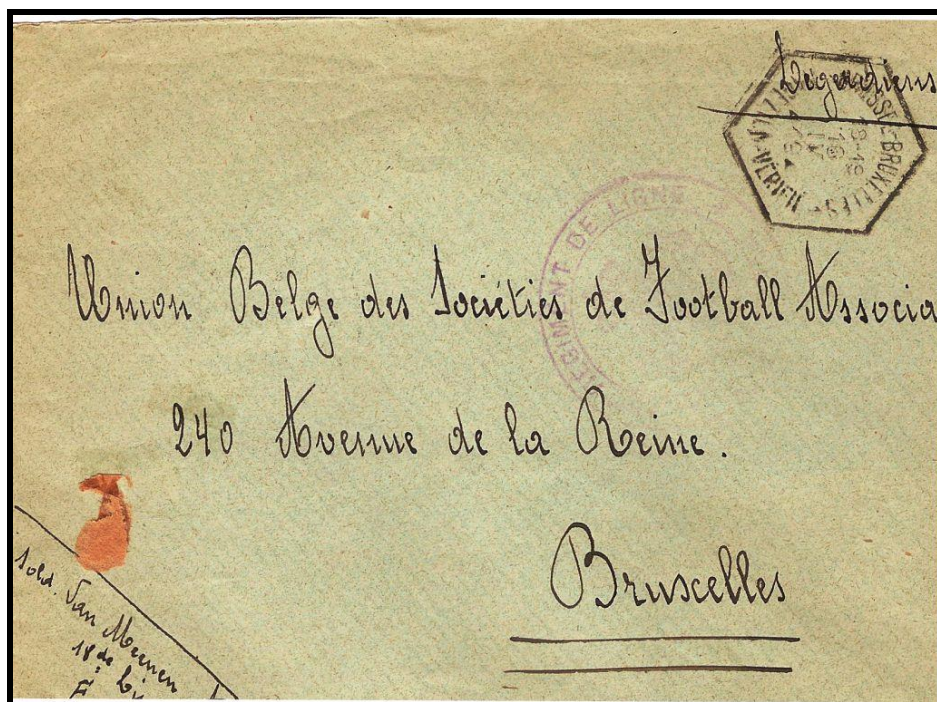 Légerdiens
REGIMENT DE LIGNE
Union Belge des Sociéties de Football Associa
240 Avenue de la Reine.
Bruxelles
Sold. Van Meenen
18de Li